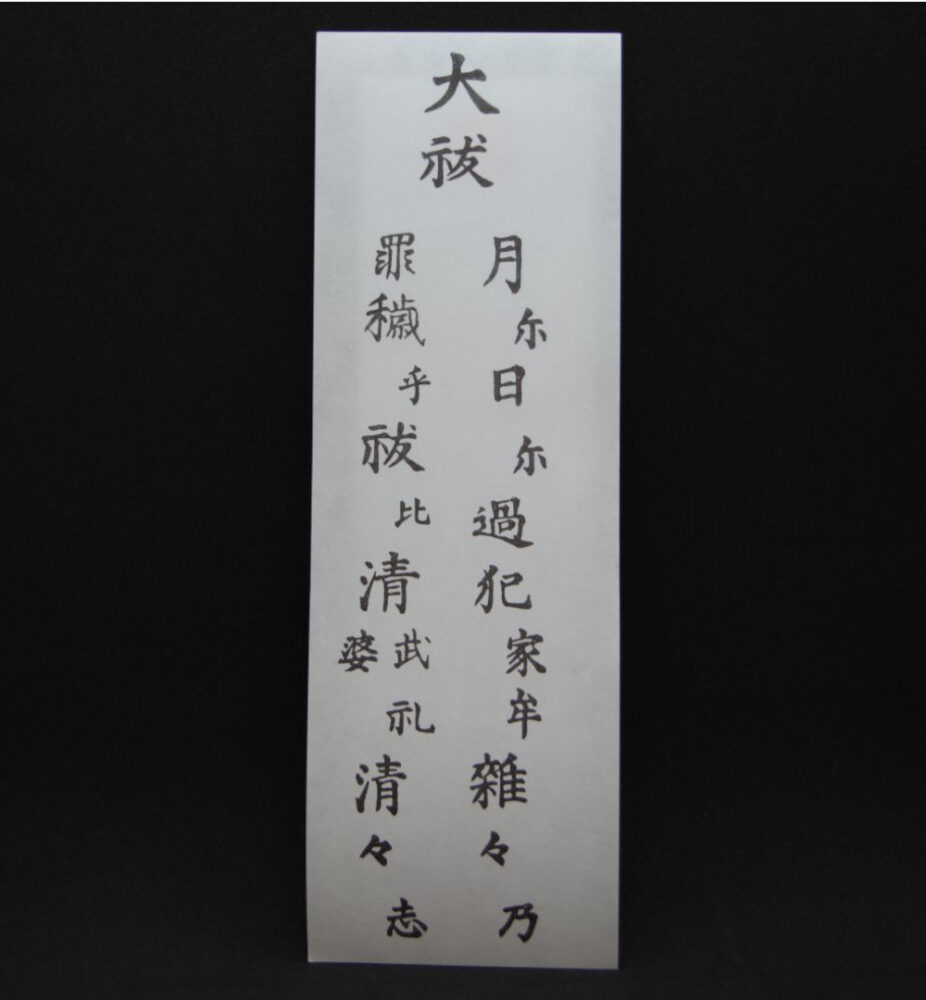 大祓
月尓日尓過犯家牟雜々乃
罪穢乎祓比清武礼婆清々志